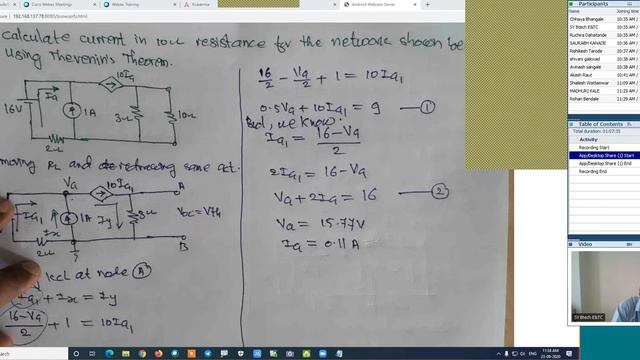 Cisco Webex Meetings
Webex Training
Academia
Android Webcam Server
192.168.137.78:8080/browserfs.html
calculate current in 10Ω resistance for the network shown be
using Thevenin's Theorem.
10Ia
Ia
16V
1A
3Ω
10Ω
2Ω
moving RL and
same
Va
10Ia1
A
Ia1
1A
Iy
3Ω
Voc = VTh
Ix
2Ω
B
KCL at node A
Ia1 + Ix = Iy
16-Va/2 + 1 = 10Ia1
16/2 - Va/2 + 1 = 10Ia1
0.5Va + 10Ia1 = 9 — 1
But, we know:
Ia1 = 16-Va/2
2Ia1 = 16-Va
Va + 2Ia = 16 — 2
Va = 15.77V
Ia = 0.11 A
Participants
Name
Joining time
Chhaya Bhangale 10:35 AM
SY Btech E&TC 10:35 AM
Ruchira Dahatonde 10:35 AM
SAURABH KANADE 10:36 AM
Rishikesh Tarode 10:37 AM
shivani gaikwad 10:38 AM
Avinash sangale 10:38 AM
Akash Raut 10:41 AM
Shailesh Wattamwar 11:09 AM
MADHURI KALE 11:23 AM
Rohan Bendale 11:29 AM
Table of Contents
Total duration: 01:07:35
Activity
Recording Start
App/Desktop Share (1) Start
App/Desktop Share (1) End
Recording End
Video
SY Btech E&TC
11:34 AM
21-09-2020